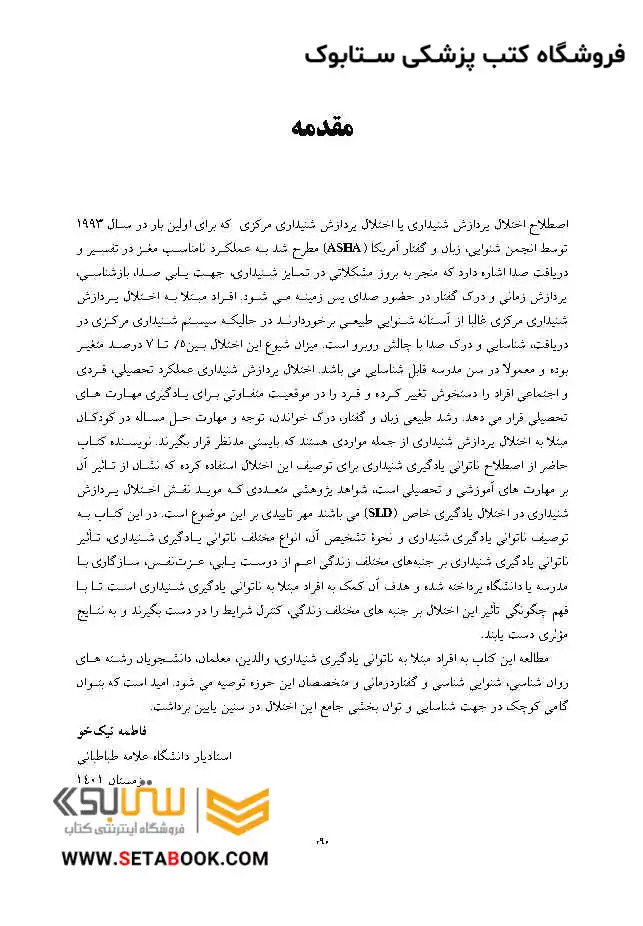 فروشگاه کتب پزشکی ستابوک
مقدمه
اصطلاح اختلال پردازش شنیداری یا اختلال پردازش شنیداری مرکزی که برای اولین بار در سال ۱۹۹۳
توسط انجمن شنوایی، زبان و گفتار آمریکا (ASHA) مطرح شد به عملکرد نامناسب مغز در تفسیر و
دریافت صدا اشاره دارد که منجر به بروز مشکلاتی در تمایز شنیداری، جهت یابی صدا، بازشناسی،
پردازش زمانی و درک گفتار در حضور صدای پس زمینه می شود. افراد مبتلا به اختلال پردازش
شنیداری مرکزی غالبا از آستانه شنوایی طبیعی برخوردارند در حالیکه سیستم شنیداری مرکزی در
دریافت، شناسایی و درک صدا با چالش روبرو است. میزان شیوع این اختلال بین ۵/ تا ۷ درصد متغیر
بوده و معمولا در سن مدرسه قابل شناسایی می باشد. اختلال پردازش شنیداری عملکرد تحصیلی، فردی
و اجتماعی افراد را دستخوش تغییر کرده و فرد را در موقعیت متفاوتی برای یادگیری مهارت های
تحصیلی قرار می دهد. رشد طبیعی زبان و گفتار، درک خواندن، توجه و مهارت حل مساله در کودکان
مبتلا به اختلال پردازش شنیداری از جمله مواردی هستند که بایستی مدنظر قرار بگیرند. نویسنده کتاب
حاضر از اصطلاح ناتوانی یادگیری شنیداری برای توصیف این اختلال استفاده کرده که نشان از تاثیر آن
بر مهارت های آموزشی و تحصیلی است، شواهد پژوهشی متعددی که موید نقش اختلال پردازش
شنیداری در اختلال یادگیری خاص (SLD) می باشند مهر تاییدی بر این موضوع است. در این کتاب به
توصیف ناتوانی یادگیری شنیداری و نحوۀ تشخیص آن، انواع مختلف ناتوانی یادگیری شنیداری، تأثیر
ناتوانی یادگیری شنیداری بر جنبه‌های مختلف زندگی اعم از دوست یابی، عزت‌نفس، سازگاری با
مدرسه یا دانشگاه پرداخته شده و هدف آن کمک به افراد مبتلا به ناتوانی یادگیری شنیداری است تا با
فهم چگونگی تأثیر این اختلال بر جنبه های مختلف زندگی، کنترل شرایط را در دست بگیرند و به نتایج
مؤثری دست یابند.
مطالعه این کتاب به افراد مبتلا به ناتوانی یادگیری شنیداری، والدین، معلمان، دانشجویان رشته های
روان شناسی، شنوایی شناسی و گفتاردرمانی و متخصصان این حوزه توصیه می شود. امید است که بتوان
گامی کوچک در جهت شناسایی و توان بخشی جامع این اختلال در سنین پایین برداشت.
فاطمه نیک‌خو
استادیار دانشگاه علامه طباطبائی
زمستان ۱۴۰۱
ستابوک
فروشگاه اینترنتی کتاب
WWW.SETABOOK.COM
۰۹۰